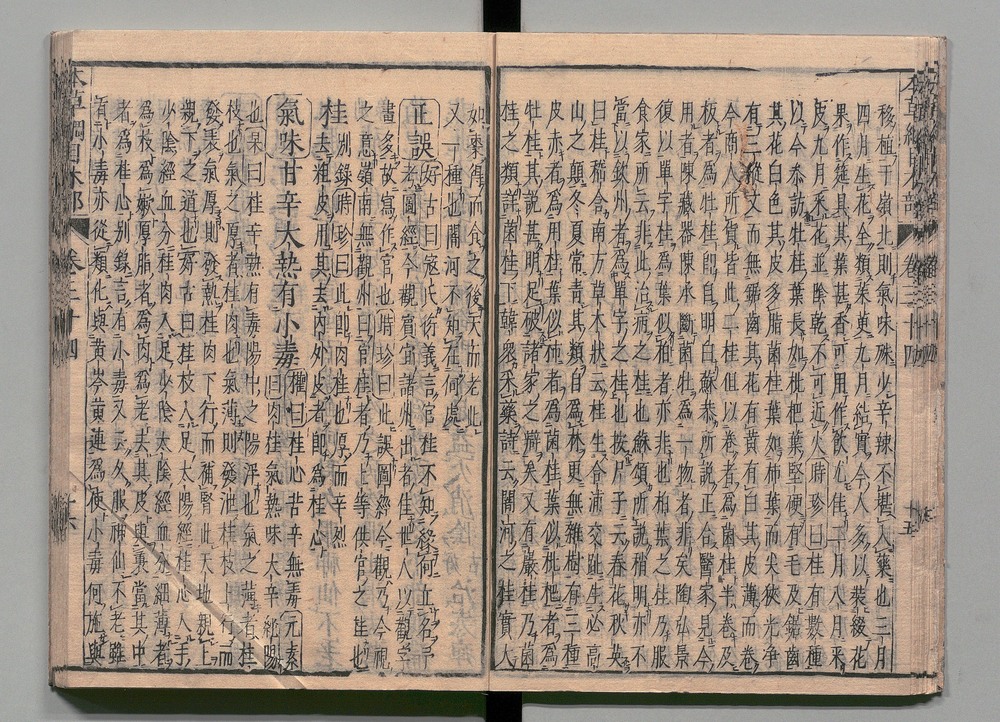 移植于嶺北則氣味殊少辛辣不堪入藥也三月
四月生花全類茱萸九月結實今人多以裝綴花
果作筵具其葉甚香可用作飲尤佳二月八月采
皮九月采花並陰乾不可近火時珍曰桂有數種
以今參訪牡桂葉長如枇杷葉堅硬有毛及鋸齒
其花白色其皮多脂菌桂葉如柿葉而尖狹光淨
有三縱文而無鋸齒其花有黃有白其皮薄而卷
今商人所貨皆此二桂但以卷者為菌桂半卷及
板者為牡桂即自明白蘇恭所說正合醫家見今
用者陳藏器陳承斷菌牡為一物者非矣陶弘景
復以單字桂為葉似柏者亦非也柏葉之桂乃服
食家所云非此治病之桂也蘇頌所說稍明亦不
當以欽州者為單字之桂也按尸子云春花秋英
曰桂嵇含南方草木狀云桂生合浦交趾生必高
山之顛冬夏常青其類自為林更無雜樹有三種
皮赤者為丹桂葉似柿者為菌桂葉似枇杷者為
牡桂其說甚明足破諸家之辯矣又有巖桂乃菌
桂之類詳菌桂下韓衆采藥詩云闇河之桂實大
如棗得而食之後天而老此
又一種也闇河不知在何處
正誤好古曰寇氏衍義言官桂不知緣何立名予
考圖經今觀賓宜諸州出者佳世人以觀字
畫多故寫作官也時珍曰此誤圖經今觀乃今視
之意嶺南無觀州曰官桂者乃上等供官之桂也
桂別錄時珍曰此即肉桂也厚而辛烈
去粗皮用其去內外皮者即為桂心
氣味甘辛大熱有小毒權曰桂心苦辛無毒元素
曰肉桂氣熱味大辛純陽
也杲曰桂辛熱有毒陽中之陽浮也氣之薄者桂
枝也氣之厚者桂肉也氣薄則發泄桂枝上行而
發表氣厚則發熱桂肉下行而補腎此天地親上
親下之道也好古曰桂枝入足太陽經桂心入手
少陰經血分桂肉入足少陰太陰經血分細薄者
為枝為嫩厚脂者為肉為老去其皮與裏當其中
者為桂心別錄言有小毒又云久服神仙不老雖
有小毒亦從類化與黃芩黃連為使小毒何施與